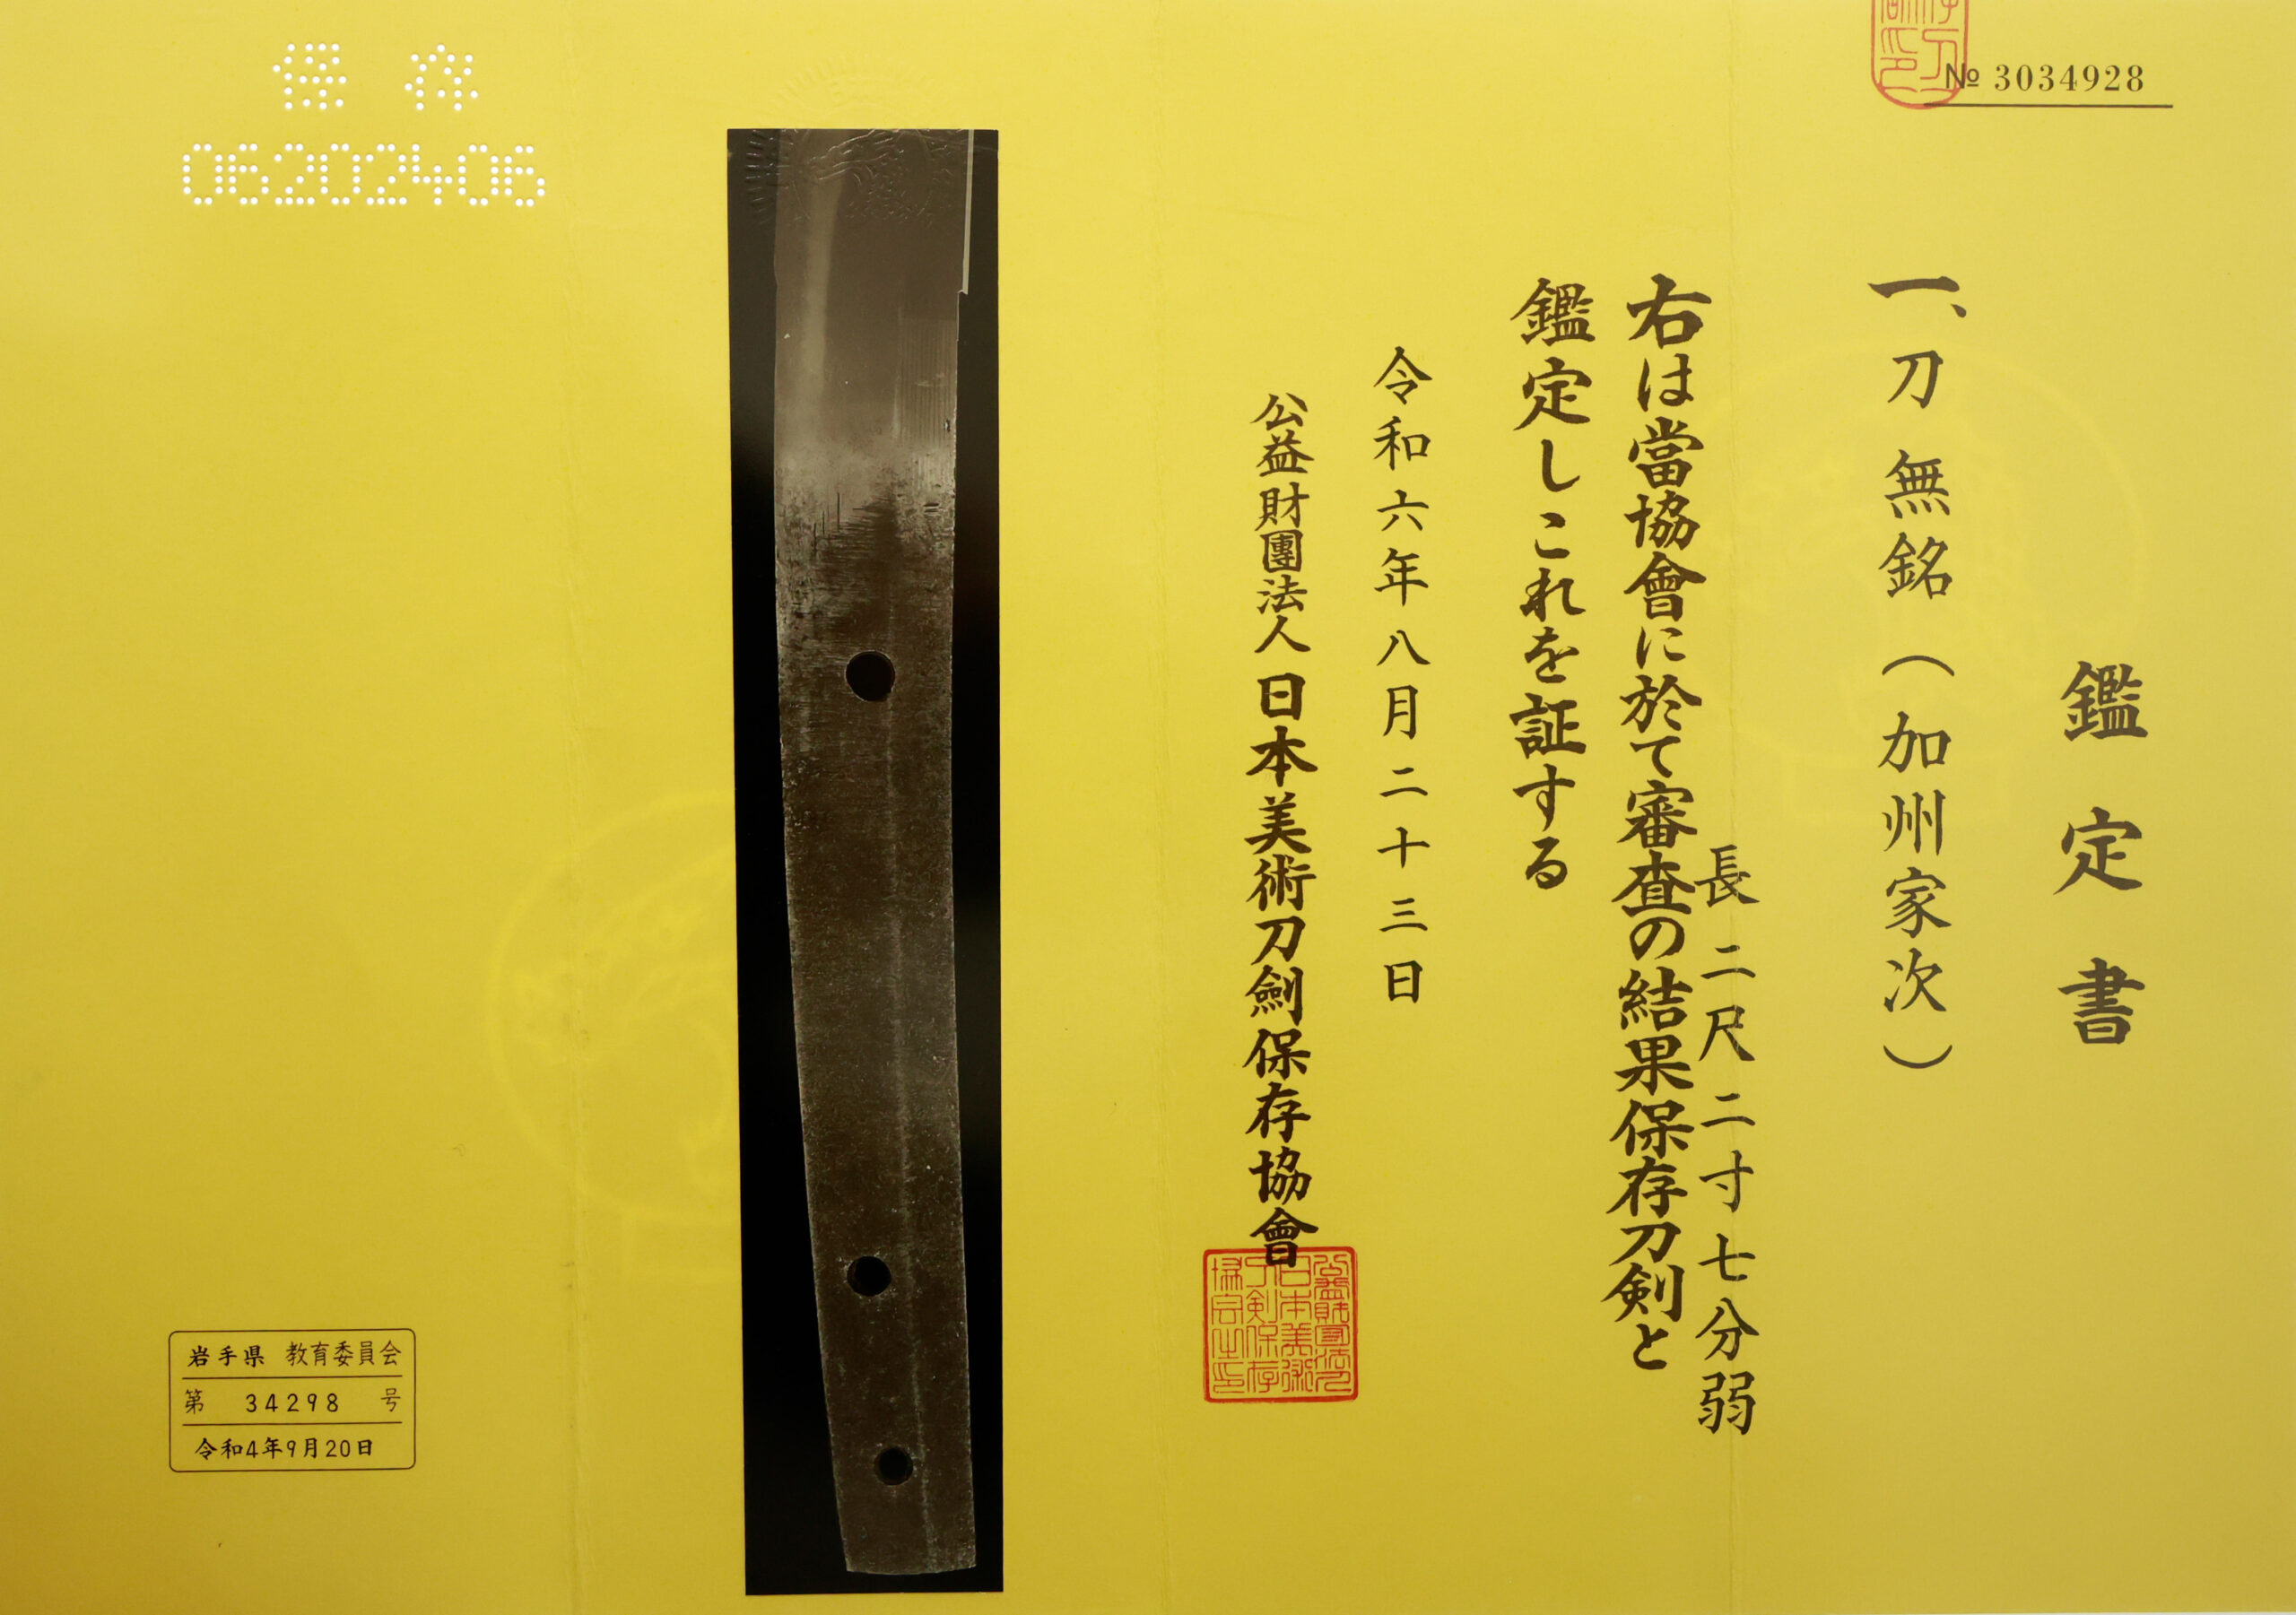 № 3034928
鑑定書
一、刀 無銘(加州家次)
長二尺二寸七分弱
右は當協會に於て審査の結果保存刀剣と
鑑定しこれを証する
令和六年八月二十三日
公益財團法人日本美術刀劍保存協會
保存
06202406
岩手県 教育委員会
第 34298 号
令和4年9月20日